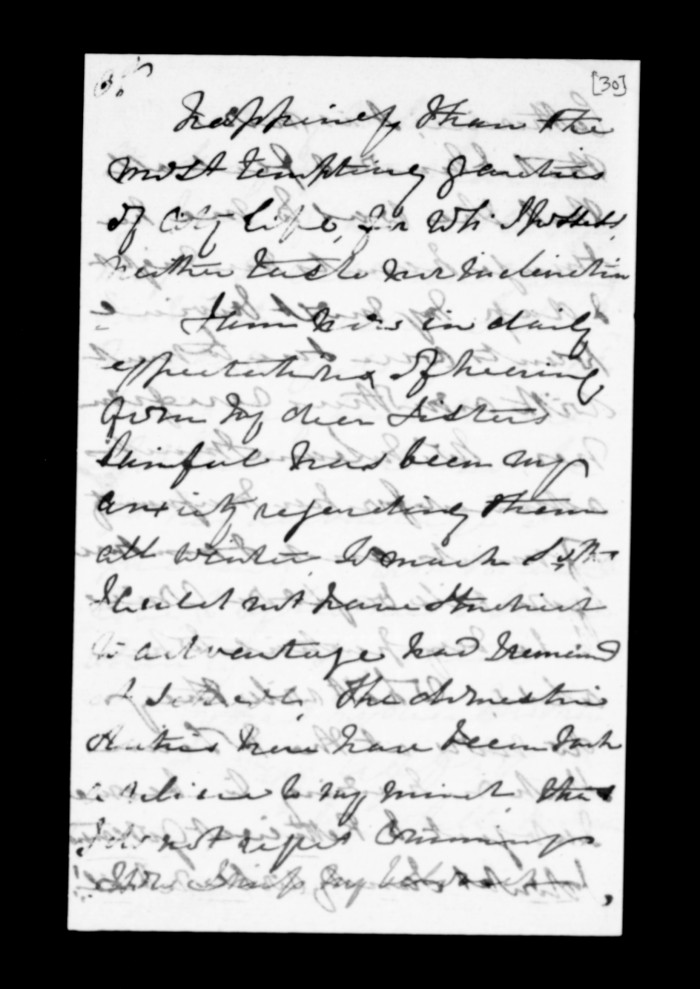 [30]
happiness than the
most tempting gaieties
of City life, for wh: I possess
neither taste nor inclination
I am now in daily
expectations of hearing
from my dear Sisters
Painful has been my
anxiety regarding them
all winter so much so
I could not have
to advantage had I remained
at The domestic
duties here have been such
a relief to my mind that
I do not regret